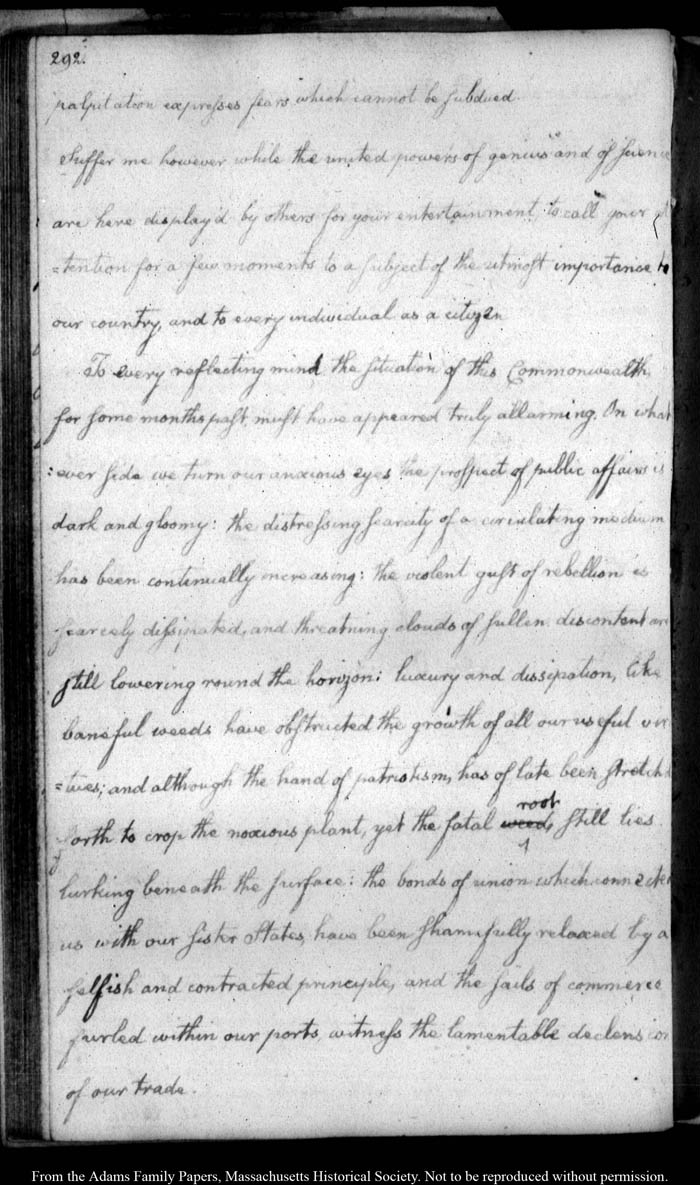 292.
palpitation expresses fears which cannot be subdued.
Suffer me however while the united powers of genius and of science
are here display'd by others for your entertainment, to call your at
=tention for a few moments to a subject of the utmost importance to
our country, and to every individual as a citizen
To every reflecting mind the situation of this Commonwealth,
for some months past, must have appeared truly allarming. On what
:ever side we turn our anxious eyes the prospect of public affairs is
dark and gloomy: the distressing scarcity of a circulating medium
has been continually increasing: the violent gust of rebellion is
scarcely dissipated, and threatning clouds of sullen discontent are
still lowering round the horizon: luxury and dissipation, like
baneful weeds have obstructed the growth of all our useful vir
=tues; and although the hand of patriotism, has of late been stretch'd
root
forth to crop the noxious plant, yet the fatal weed, still lies
lurking beneath the surface: the bonds of union which connected
us with our sister States, have been shamefully relaxed by a
selfish and contracted principle, and the sails of commerce
furled within our ports, witness the lamentable declension
of our trade.
From the Adams Family Papers, Massachusetts Historical Society. Not to be reproduced without permission.